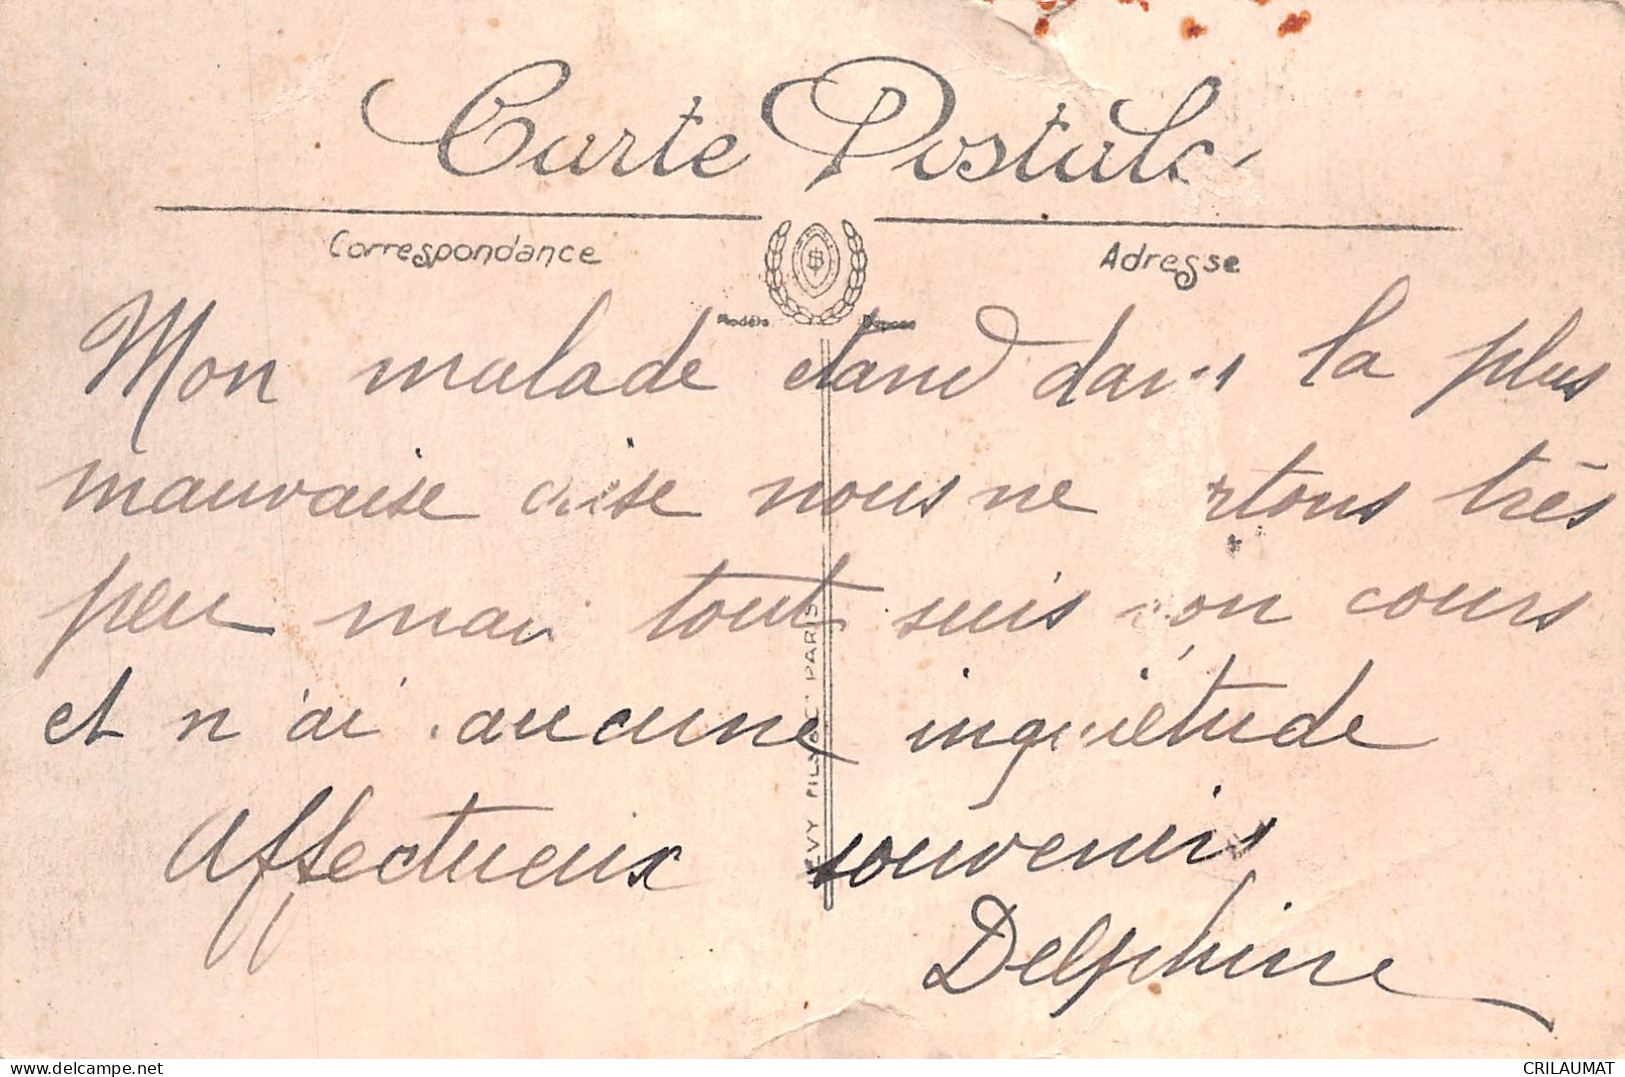 Carte Postale
Correspondance
Adresse
Modèle Déposé
Mon malade étand dans la plus
mauvaise crise nous ne rtons très
peu mais tout suis son cours
et n'ai aucune inquiétude
Affectueux souvenirs
Delphine
LEVY FILS & Cie PARIS
delcampe.net
CRILAUMAT